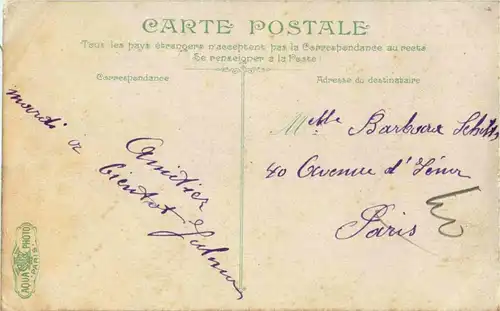 CARTE POSTALE
Tous les pays étrangers n'acceptent pas la Correspondance au recto
Se renseigner à la Poste
Correspondance
Adresse du destinataire
mardi
a
bientot
Amitiés
Melle Barbeau
40 Avenue d'Iéna
Paris
AQUA PHOTO
PARIS